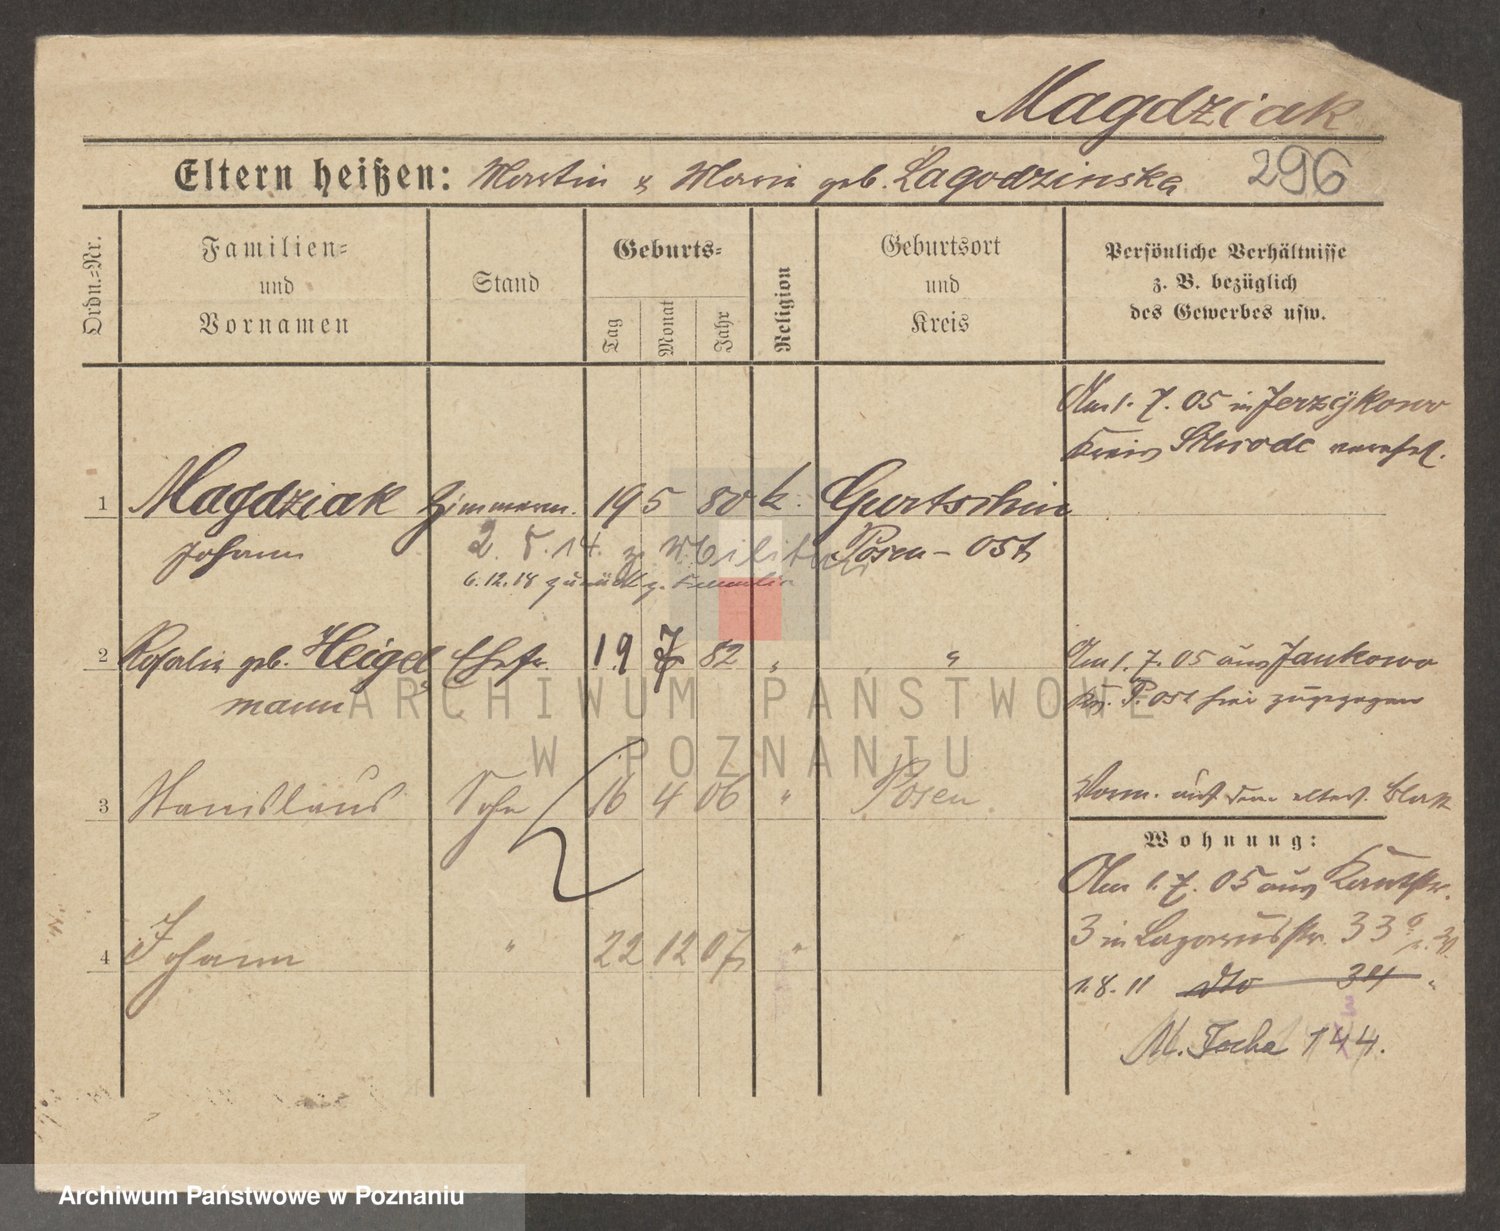 Magdziak
Eltern heißen: Martin & Maria geb. Lagodzinska 296
Ordn.-Nr.
Familien- und Vornamen
Stand
Geburts-
Tag
Monat
Jahr
Religion
Geburtsort und Kreis
Persönliche Verhältnisse
z. B. bezüglich
des Gewerbes usw.
Am 1. 7. 05 in Jerzykowo
Kreis Schrode verehel.
1 Magdziak Zimmerm. 19 5 80 k. Gurtschin
Johann 2. 5. 14. z. Militär Posen-Ost
6.12.18 zurück z. Familie
2 Rosalia geb. Heigel Ehefr. 19 7 82 " " Am 1. 7. 05 aus Jankowo
mann Kr. P. Ost hier zugezogen
3 Stanislaus Sohn 16 4 06 " Posen Vorm. auf dem elterl. Blatt
Wohnung:
Am 1. 7. 05 aus
4 Johann " 22 12 07 " " 3 in Lazarusstr. 33
1. 8. 11 dto 34 "
M. Focha 144.
ARCHIWUM PAŃSTWOWE
W POZNANIU
Archiwum Państwowe w Poznaniu